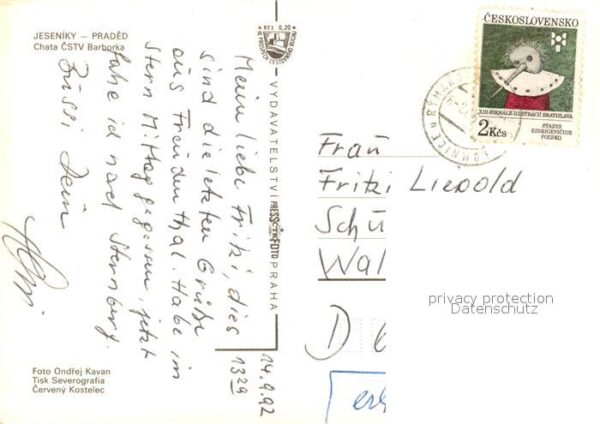 JESENÍKY — PRADĚD
Chata ČSTV Barborka
Kčs 0,20
VYDAVATELSTVÍ PRESSFOTO PRAHA
14.9.92
13 20
Mein liebe Fritzi, dies
sind die letzten Grüße
aus Freudenthal. Habe im
Stern Mittag gegessen, jetzt
fahre ich nach Sternberg.
Bussi Dein
Foto Ondřej Kavan
Tisk Severografia
Červený Kostelec
ČESKOSLOVENSKO
XIII BIENÁLE ILUSTRÁCIÍ BRATISLAVA
2 Kčs
STASYS
EIDRIGEVIČIUS
POĽSKO
Frau
Fritzi Liepold
Schü
Wal
D
privacy protection
Datenschutz